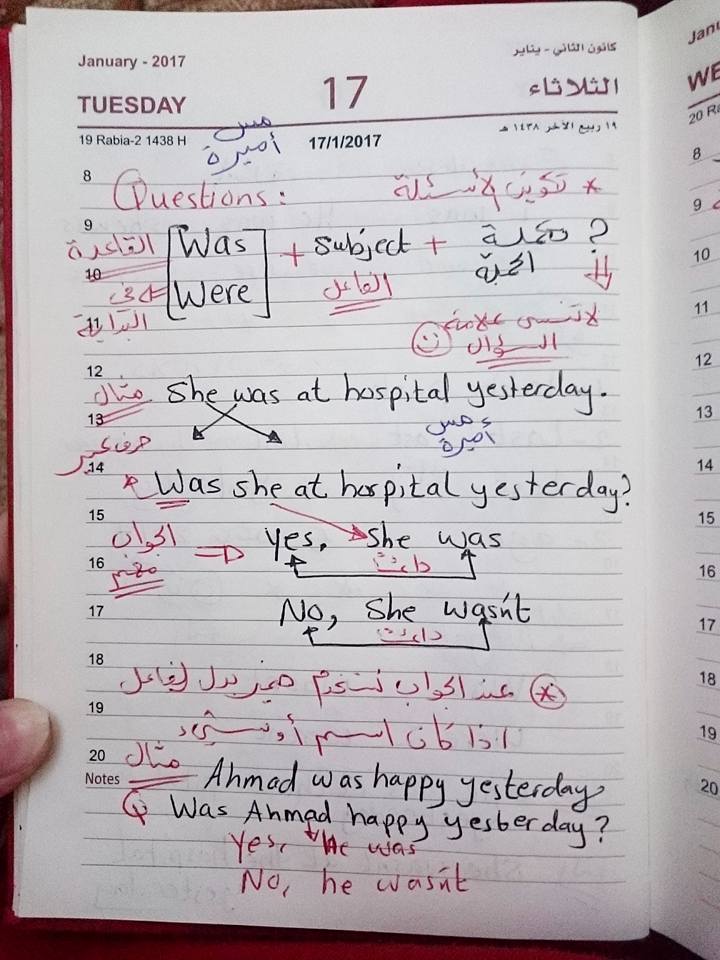 January - 2017 كانون الثاني - يناير
TUESDAY 17 الثلاثاء
19 Rabia-2 1438 H 17/1/2017 ١٩ ربيع الآخر ١٤٣٨ هـ
مس
أميرة
8
Questions: * تكوين الأسئلة
9
القاعدة Was + Subject + تكملة ?
10
في Were الفاعل الجملة
11
البداية لا تنسى علامة
السؤال
12
مثال She was at hospital yesterday.
13
حرف كبير مس
أميرة
14
Was she at hospital yesterday?
15
الجواب ⇒ Yes, She was
16
مختصر دائما
No, She wasn't
17
دائما
18
* عند الجواب نستخدم ضمير بدل الفاعل
19
اذا كان اسم أو شيء
20
مثال
Notes Ahmad was happy yesterday
Q Was Ahmad happy yesterday?
Yes, He was
No, he wasn't
Janu
WE
20 Ra
8
9
10
11
12
13
14
15
16
17
18
19
20